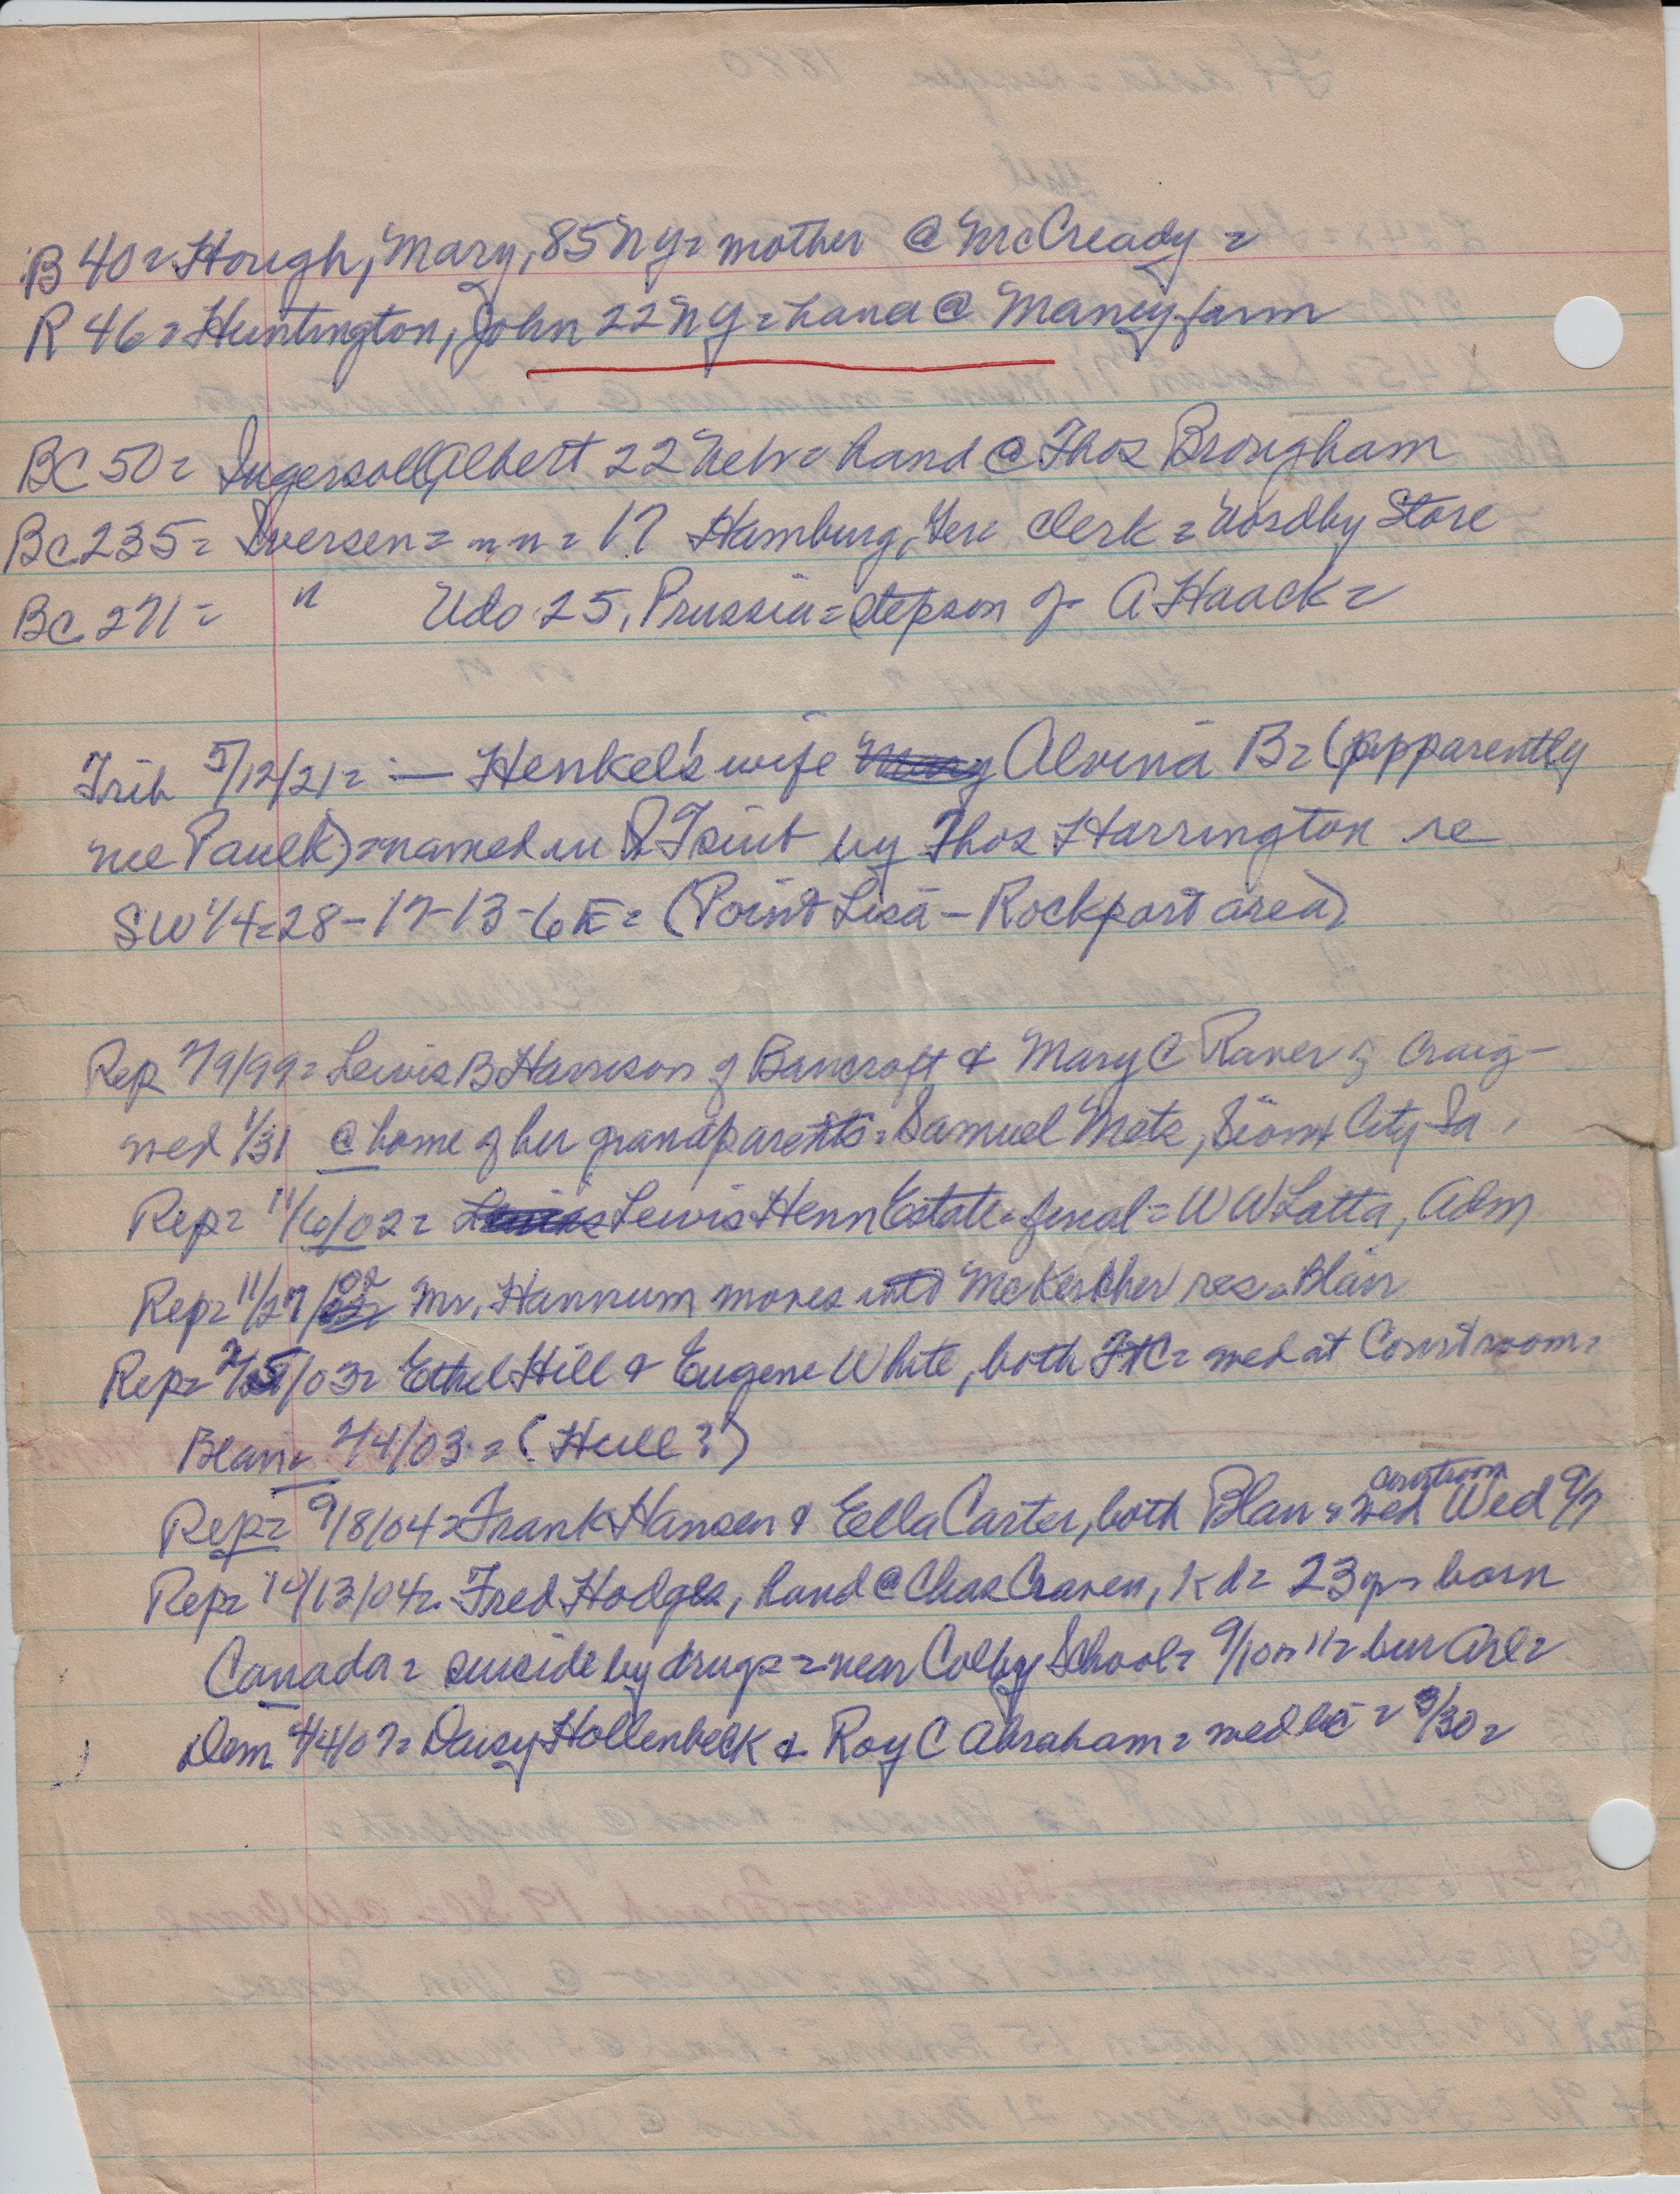 B 40 = Hough, Mary, 85 NY = mother @ McCready =
R 46 = Huntington, John 22 NY = hand @ Maney farm
BC 50 = Ingersoll, Albert 22 Neb = hand @ Thos Brougham
BC 235 = Iversen = n n = 17 Hamburg, Ger clerk = Store
BC 271 = " Udo 25, Prussia = stepson of A Haack =
Trib 5/12/21 = — Henkel's wife Mary Alvina B = (apparently
nee Paulk) = named in by Thos Harrington re
SW 1/4 = 28 - 17 - 13 - 6 E = (Point Lisa - Rockport area)
Rep 2/9/99 = Lewis B Harrison of Bancroft & Mary C Raver of Craig -
wed 1/31 @ home of her grandparents = Samuel Metz, Sioux City Ia.
Rep = 11/6/02 = Lewis Henn Estate = final = W W Latta, Adm
Rep = 11/27/02 Mr. Hannum moves into McKercher res = Blair
Rep = 2/5/03 = Ethel Hill & Eugene White, both FtC = wed at Courtroom =
Blair = 2/4/03 = (Hull?)
Rep = 9/8/04 = Frank Hansen & Eella Carter, both Blair = wed courtroom Wed 9/7
Rep = 10/13/04 = Fred Hodges, hand @ Chas Craven, Kd = 23 y = born
Canada = suicide by drugs = near Colby School = 9/10 n 11 = bur Arl =
Dem 4/4/07 = Daisy Hollenbeck & Roy C Abraham = wed lic = 3/30 =